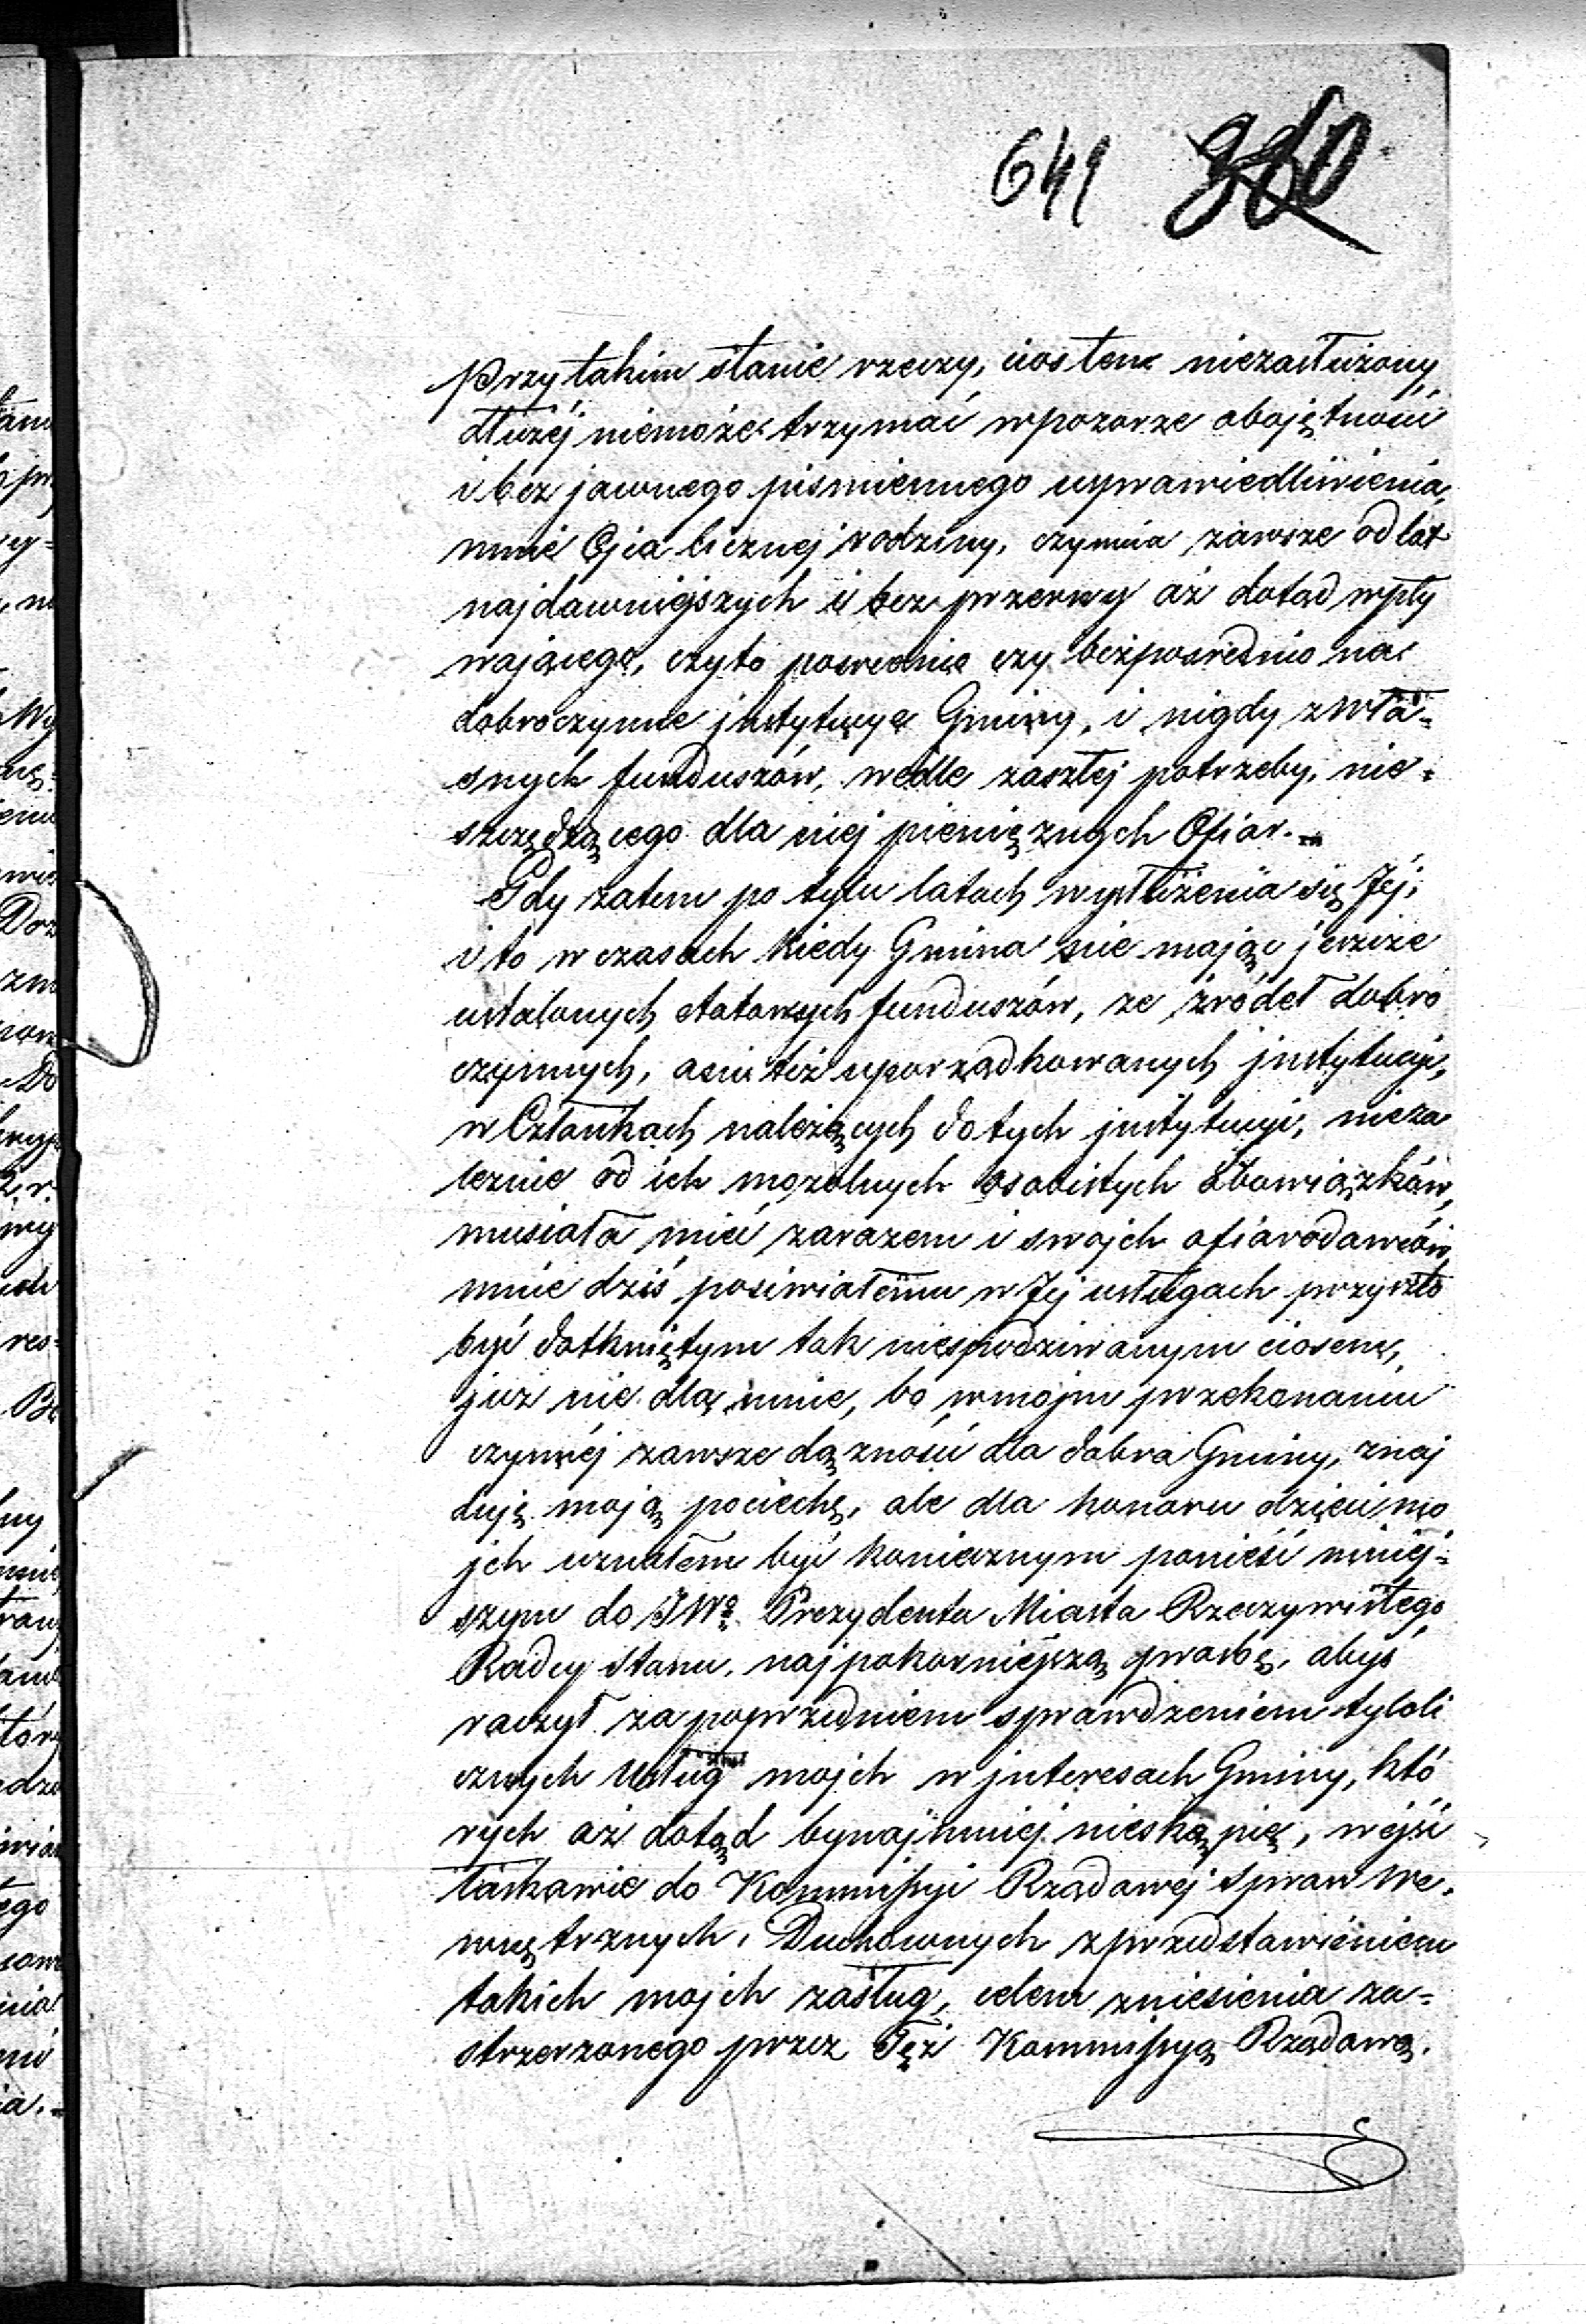 641 380
Przy takim stanie rzeczy, cios ten niezasłużony
dłużéj niemoże trzymać w pozorze obojętności
i bez jawnego piśmiennego usprawiedliwienia,
mnie Ojca licznej rodziny, czynnie zawsze od lat
najdawniejszych i bez przerwy aż dotąd wpły
wającego, czyto pośrednio czy bezpośrednio na
dobroczynne jnstytucye Gminy, i nigdy z wła-
snych funduszów, wedle zaszłej potrzeby, nie-
szczędzącego dla niej pieniężnych Ofiar.-
Gdy zatem po tylu latach wysłużenia się Jéj,
i to w czasach kiedy Gmina nie mając jeszcze
ustalonych etatowych funduszów, ze źródeł dobro
czynnych, ani też uporządkowanych jnstytucyi,
w Członkach należących do tych jnstytucyi, nieza
leżnie od ich mozolnych osobistych Obowiązków,
musiała mieć zarazem i swojch ofiarodawców,
mnie dziś posiwiałemu w Jej usługach przyszło
być dotkniętym tak niespodziwanym ciosem,
już nie dla mnie, bo w mojm przekonaniu
czynnéj zawsze dążności dla dobra Gminy, znaj
duję moją pociechę, ale dla honoru dzieci mo
jch uznałem być koniecznym ponieść niniej-
szym do JWo Prezydenta Miasta Rzeczywistego
Radcy Stanu, najpokorniejszą prośbę, abyś
raczył za poprzedniem sprawdzeniem tyloli
cznych usług mojch w jnteresach Gminy, któ
rych aż dotąd bynajmniej nieskąpię, wejść
łaskawie do Kommissyi Rządowej Spraw We-
wnętrznych i Duchownych z przedstawieniem
takich mojch zasług, celem zniesienia za-
strzeżonego przez Też Kommissyą Rządową.